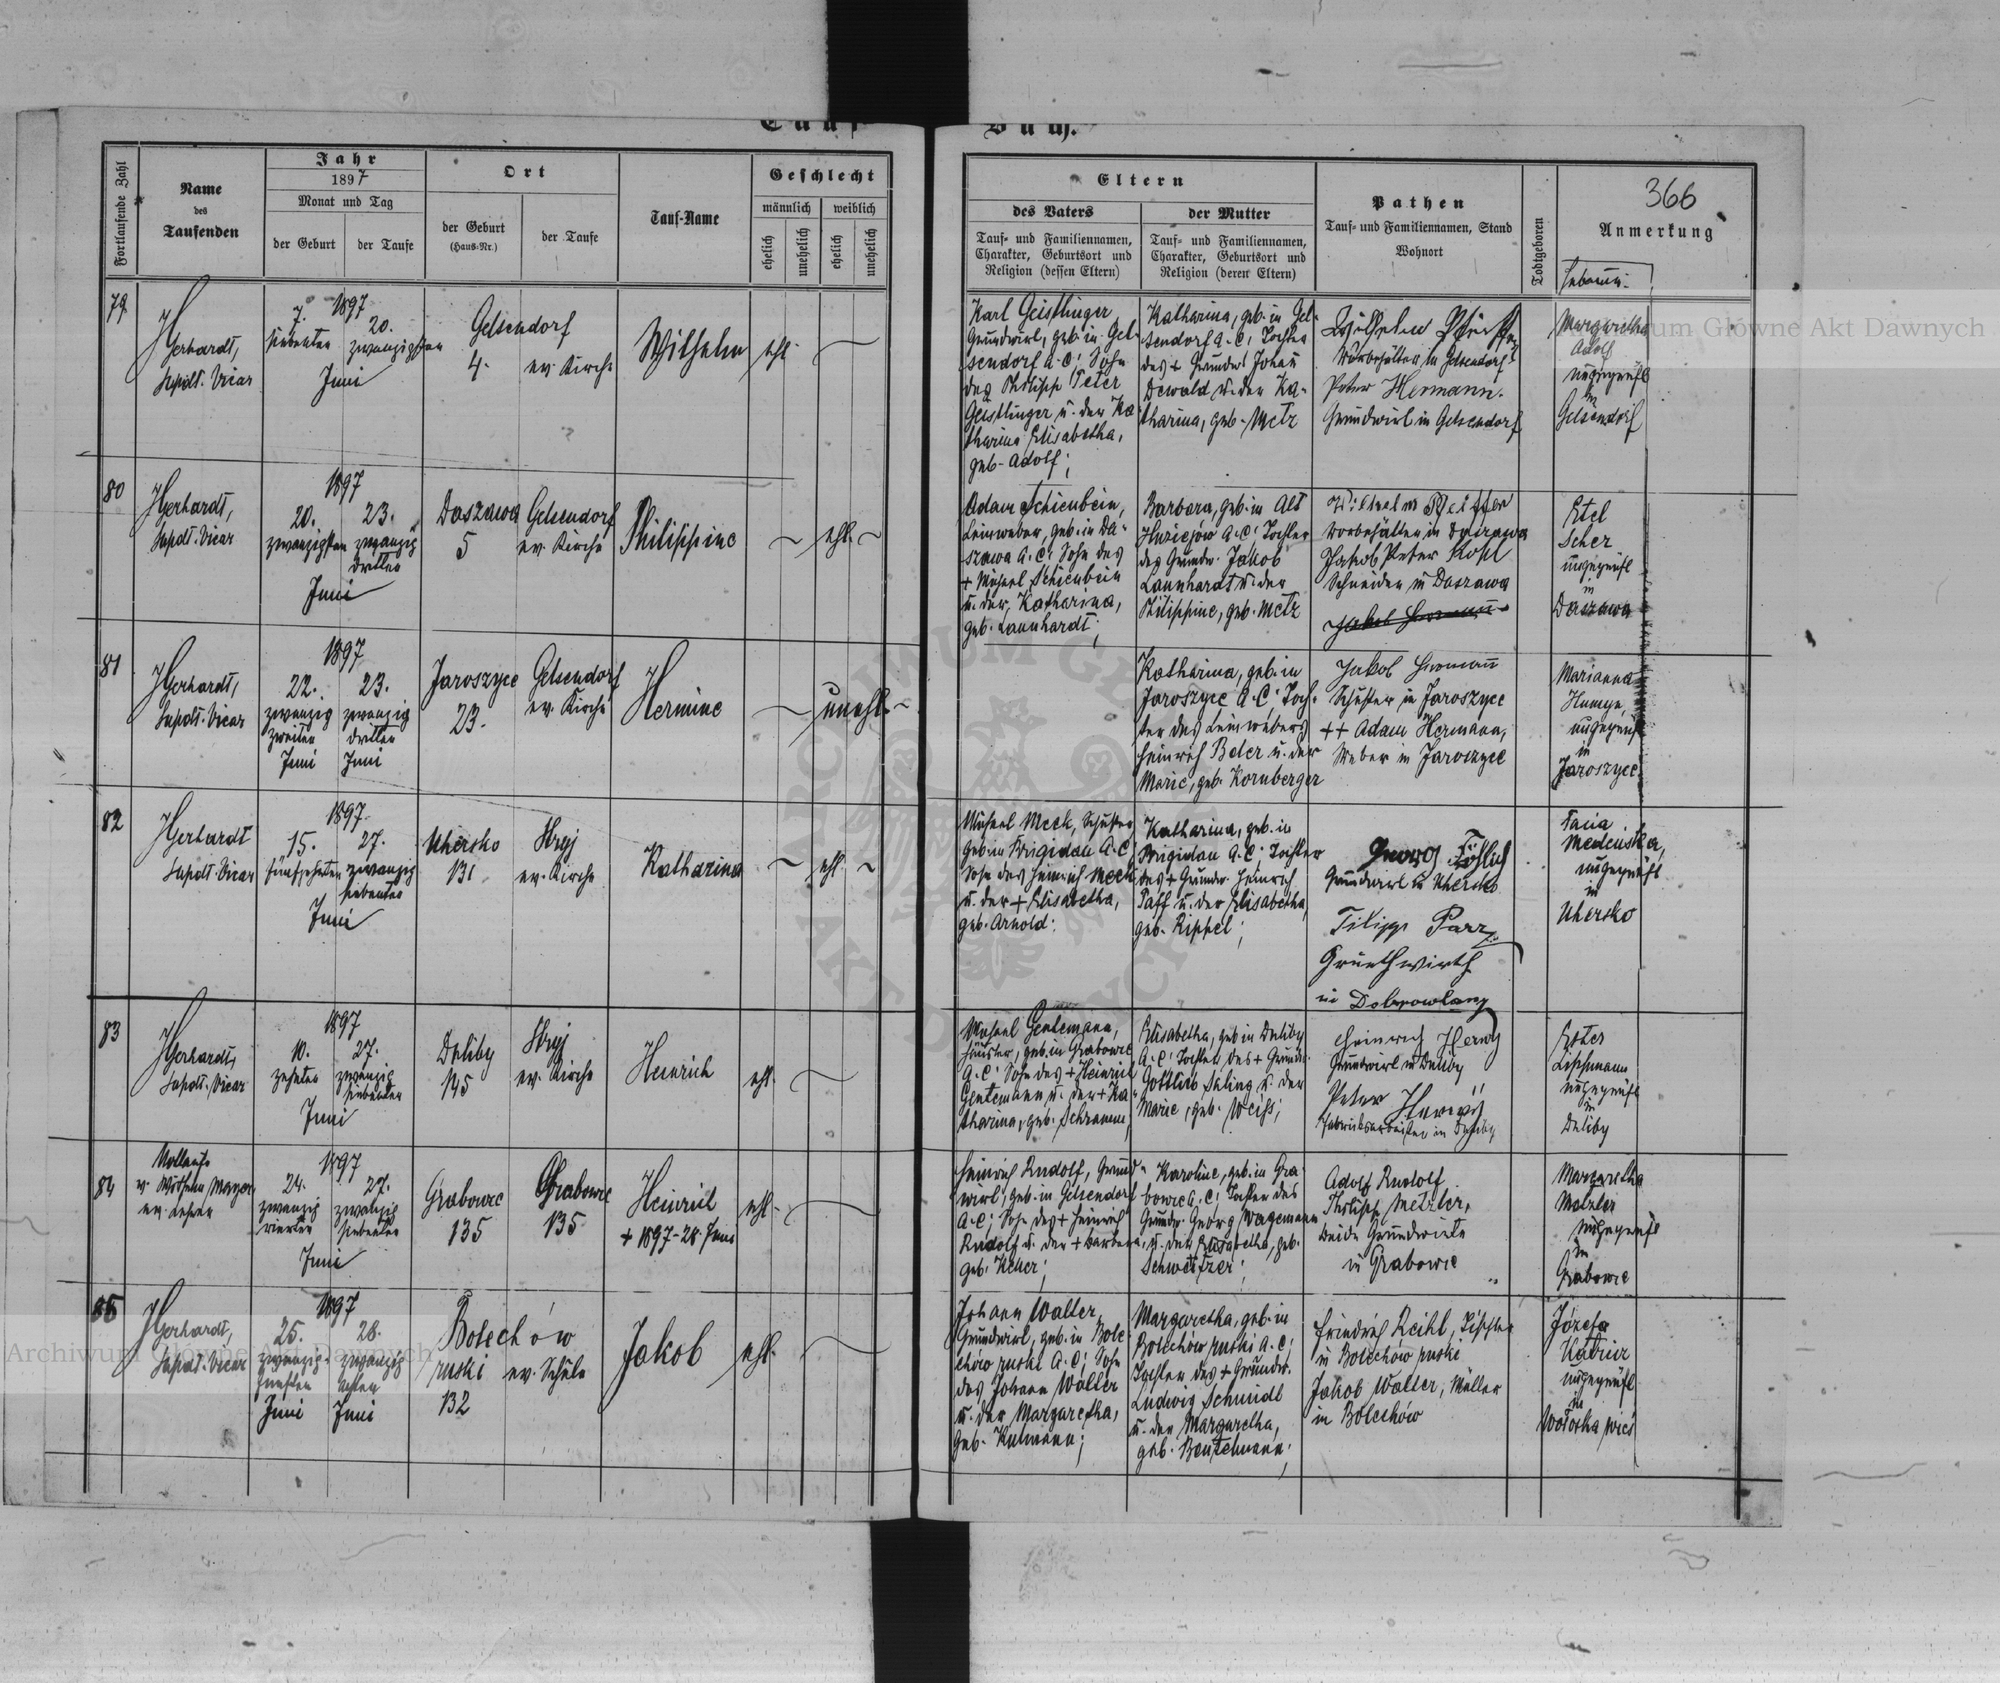 Tauf-Buch.
366
Fortlaufende Zahl
Name
des
Taufenden
Jahr
1897
Monat und Tag
der Geburt
der Taufe
Ort
der Geburt
(Haus-Nr.)
der Taufe
Tauf-Name
Geschlecht
männlich
weiblich
ehelich
unehelich
ehelich
unehelich
Eltern
des Vaters
Tauf- und Familiennamen,
Charakter, Geburtsort und
Religion (dessen Eltern)
der Mutter
Tauf- und Familiennamen,
Charakter, Geburtsort und
Religion (deren Eltern)
Pathen
Tauf- und Familiennamen, Stand
Wohnort
Todtgeboren
Anmerkung
Hebamm.
79
HGerhardt,
Supdt. Vicar
1897
7.
siebenten
20.
zwanzigsten
Juni
Gelsendorf
4.
ev. Kirche
Wilhelm
ehl.
Karl Geistlinger
Grundwirt, geb. in Gel-
sendorf A.C; Sohn
des Philipp Peter
Geistlinger u. der Ka-
tharina Elisabetha,
geb. Adolf;
Katharina, geb. in Gel-
sendorf A.C; Tochter
des + Grundw. Johann
Dewald u. der Ka-
tharina, geb. Metz
Wilhelm
in Gelsendorf
Peter Hermann.
Grundwirt in Gelsendorf
Margaretha
Adolf
ungeprüft
in
Gelsendorf
80
HGerhardt,
Supdt. Vicar
1897
20.
zwanzigsten
23.
zwanzig
dritten
Juni
Daszawa
5
Gelsendorf
ev. Kirche
Philippine
ehl.
Adam Schienbein,
Leinweber, geb. in Da-
szawa A.C; Sohn des
+ Michael Schienbein
u. der Katharina,
geb. Launhardt;
Barbara, geb. in Alt
A.C; Tochter
des Grundw. Jakob
Launhardt u. der
Philippine, geb. Metz
Wilhelm Pfeiffer
in Daszawa
Jakob Peter
Schneider in Daszawa
Etel
Scher
ungeprüft
in
Daszawa
81
HGerhardt,
Supdt. Vicar
1897
22.
zwanzig
zweiten
Juni
23.
zwanzig
dritten
Juni
Jaroszyce
23.
Gelsendorf
ev. Kirche
Hermine
unehl.
Katharina, geb. in
Jaroszyce A.C; Toch-
ter des Leinwebers
Heinrich Beler u. der
Marie, geb. Kornberger
Jakob Hermann
Schuster in Jaroszyce
++ Adam Hermann,
Weber in Jaroszyce
Marianna
ungeprüft
in
Jaroszyce
82
HGerhardt
Supdt. Vicar
1897
15.
fünfzehnten
27.
zwanzig
siebenten
Juni
Uhersko
131
Stryj
ev. Kirche
Katharina
ehl.
Michael Meck, Schuster
geb. in Brigidau A.C;
Sohn des Heinrich Meck
u. der + Elisabetha,
geb. Arnold;
Katharina, geb. in
Brigidau A.C; Tochter
des + Grundw. Heinrich
Paff u. der Elisabetha,
geb. Rippel;
Georg Fröhlich
Grundwirt in Uhersko
Filipp Parr
Grunthwirth
in Dobrowlany
ungeprüft
in
Uhersko
83
HGerhardt,
Supdt. Vicar
1897
10.
zehnten
27.
zwanzig
siebenten
Juni
Duliby
145
Stryj
ev. Kirche
Heinrich
ehl.
Michael Gentemann,
Häusler, geb. in Grabowce
A.C; Sohn des + Heinrich
Gentemann u. der + Ka-
tharina, geb. Schramm,
Elisabetha, geb. in Duliby
A.C; Tochter des + Grundw.
Gottlieb Saling u. der
Marie, geb. Weiss;
Heinrich
Grundwirt in Duliby
Peter
Fabriksarbeiter in Duliby
Ester
Lischmann
ungeprüft
in
Duliby
84
v. Wilhelm Mayer
ev. Lehrer
1897
24.
zwanzig
vierten
27.
zwanzig
siebenten
Juni
Grabowce
135
Grabowce
135
Heinrich
+ 1897-28. Juni
ehl.
Heinrich Rudolf, Grund-
wirt, geb. in Gelsendorf
A.C; Sohn des + Heinrich
Rudolf u. der + Barbara,
geb. Keller;
Karoline, geb. in Gra-
bowce A.C; Tochter des
Grundw. Georg Wagemann
u. der Elisabetha, geb.
Schweitzer;
Adolf Rudolf
Philipp Metzler,
beide Grundwirte
in Grabowce
Margaretha
Metzler
ungeprüft
in
Grabowce
85
HGerhardt,
Supdt. Vicar
1897
25.
zwanzig-
fünften
Juni
28.
zwanzig
achten
Juni
Bolechów
ruski
132
ev. Schule
Jakob
ehl.
Johann Walter
Grundwirt, geb. in Bole-
chów ruski A.C; Sohn
des Johann Walter
u. der Margaretha,
geb. Kulmann;
Margaretha, geb. in
Bolechów ruski A.C;
Tochter des + Grundw.
Ludwig Schmidt
u. der Margaretha,
geb. Beutelmann;
Friedrich Reihl, Tischler
in Bolechów ruski
Jakob Walter, Müller
in Bolechów
Józefa
ungeprüft
in
Wołoska wieś
Archiwum Główne Akt Dawnych
Archiwum Główne Akt Dawnych
ARCHIWUM GŁÓWNE AKT DAWNYCH